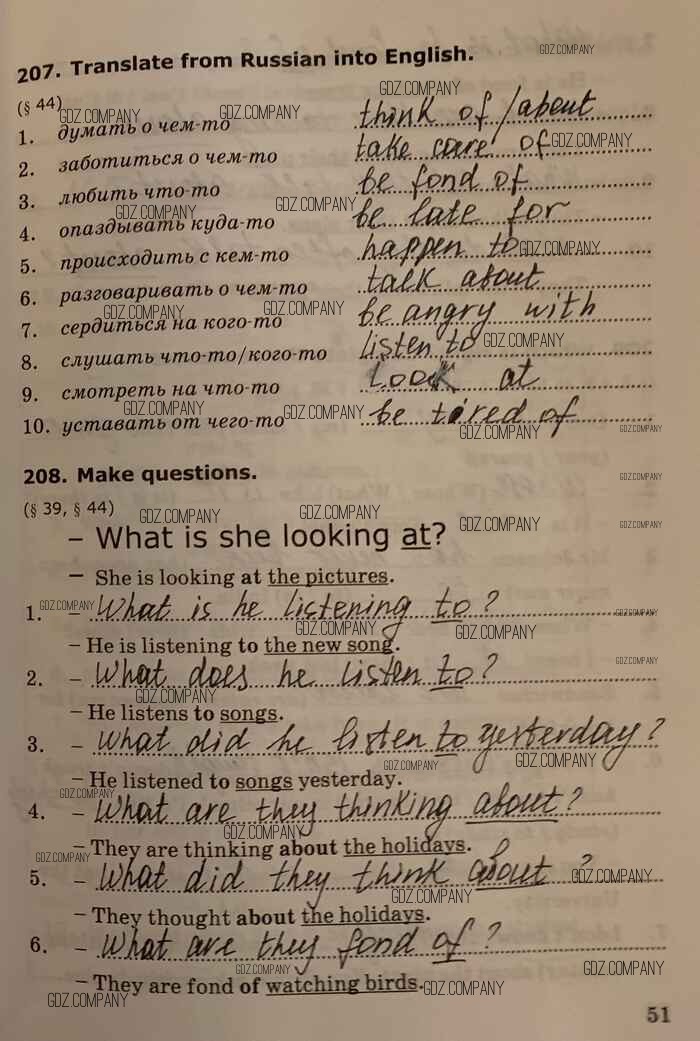 207. Translate from Russian into English.
(§ 44)
1. думать о чем-то think of / about
2. заботиться о чем-то take care of
3. любить что-то be fond of
4. опаздывать куда-то be late for
5. происходить с кем-то happen to
6. разговаривать о чем-то talk about
7. сердиться на кого-то be angry with
8. слушать что-то/кого-то listen to
9. смотреть на что-то Look at
10. уставать от чего-то be tired of
208. Make questions.
(§ 39, § 44)
– What is she looking at?
– She is looking at the pictures.
1. – What is he listening to?
– He is listening to the new song.
2. – What does he listen to?
– He listens to songs.
3. – What did he listen to yesterday?
– He listened to songs yesterday.
4. – What are they thinking about?
– They are thinking about the holidays.
5. – What did they think about?
– They thought about the holidays.
6. – What are they fond of?
– They are fond of watching birds.
51
GDZ.COMPANY